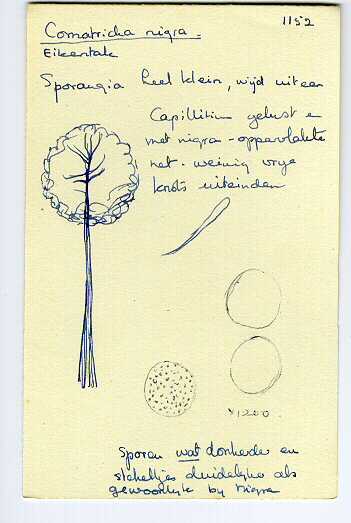 1152
Comatricha nigra.
Eikentak
Sporangia heel klein, wijd uiteen
Capillitium gelust en
met nigra-oppervlakte
net. weinig vrije
knots uiteinden
x1200.
Sporen wat donkerder en
stekeltjes duidelijker als
gewoonlijk by nigra